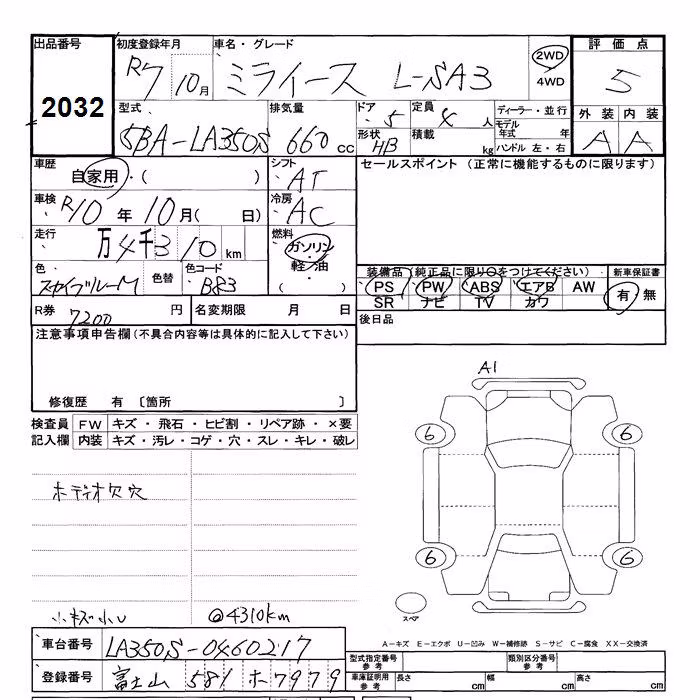 出品番号 初度登録年月 車名・グレード 評価点
2032 R7 10月 ミライース L-SA3 2WD 4WD 5
型式 排気量 ドア 定員 ディーラー・並行 外装 内装
5BA-LA350S 660 cc 5 4人 モデル年式 年 A A
形状 HB 積載 kg ハンドル 左・右
車歴 自家用・( ) シフト AT セールスポイント (正常に機能するものに限ります)
車検 R10年 10月( 日) 冷房 AC
走行 万4千310km 燃料 ガソリン・軽油 ( )
色 スカイブルーM 色替 色コード B83
装備品(純正品に限り○をつけてください) 新車保証書
PS PW ABS エアB AW 有・無
SR ナビ TV カワ
R券 7200円 名変期限 月 日 後日品
注意事項申告欄(不具合内容等は具体的に記入して下さい)
修復歴 有 〔箇所 〕
検査員 FW キズ・飛石・ヒビ割・リペア跡・×要
記入欄 内装 キズ・汚レ・コゲ・穴・スレ・キレ・破レ
A1
6 6
ホディオ欠穴
6 6
小キズ小U @4310km
スペア
A-キズ E-エクボ U-凹み W-補修跡 S-サビ C-腐食 XX-交換済
車台番号 LA350S-0460217
型式指定番号 参考 類別区分番号 参考
登録番号 富士山 581 ホ7979
車庫証明用 参考 長さ cm 幅 cm 高さ cm